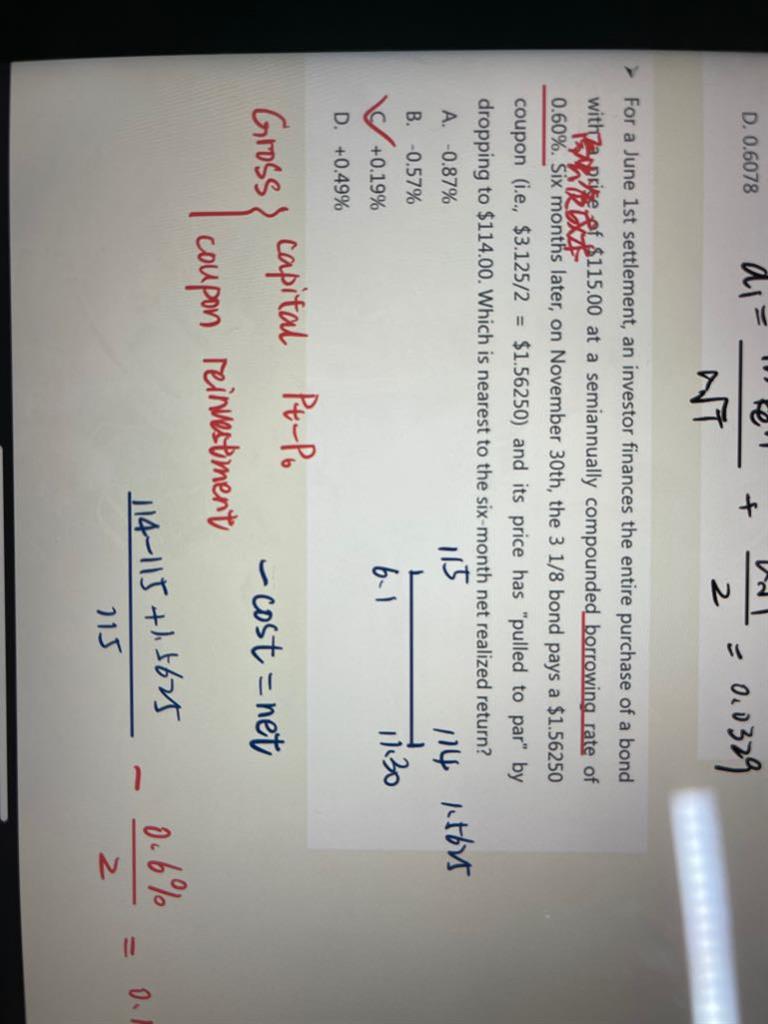 D. 0.6078
d₁ =
+
2
= 0.0329
➤ For a June 1st settlement, an investor finances the entire purchase of a bond
with a price of $115.00 at a semiannually compounded borrowing rate of
0.60%. Six months later, on November 30th, the 3 1/8 bond pays a $1.56250
coupon (i.e., $3.125/2 = $1.56250) and its price has "pulled to par" by
dropping to $114.00. Which is nearest to the six-month net realized return?
A. -0.87%
B. -0.57%
C. +0.19%
D. +0.49%
115 114 1.5625
6.1 11.30
Gross } capital Pt-P0
coupon reinvestment
- cost = net
114-115+1.5625
115
- 0.6%
2
= 0.1